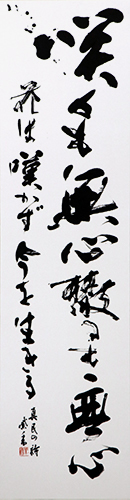 咲くも無心散るも無心
花は嘆かず今を生きる
真民の詩